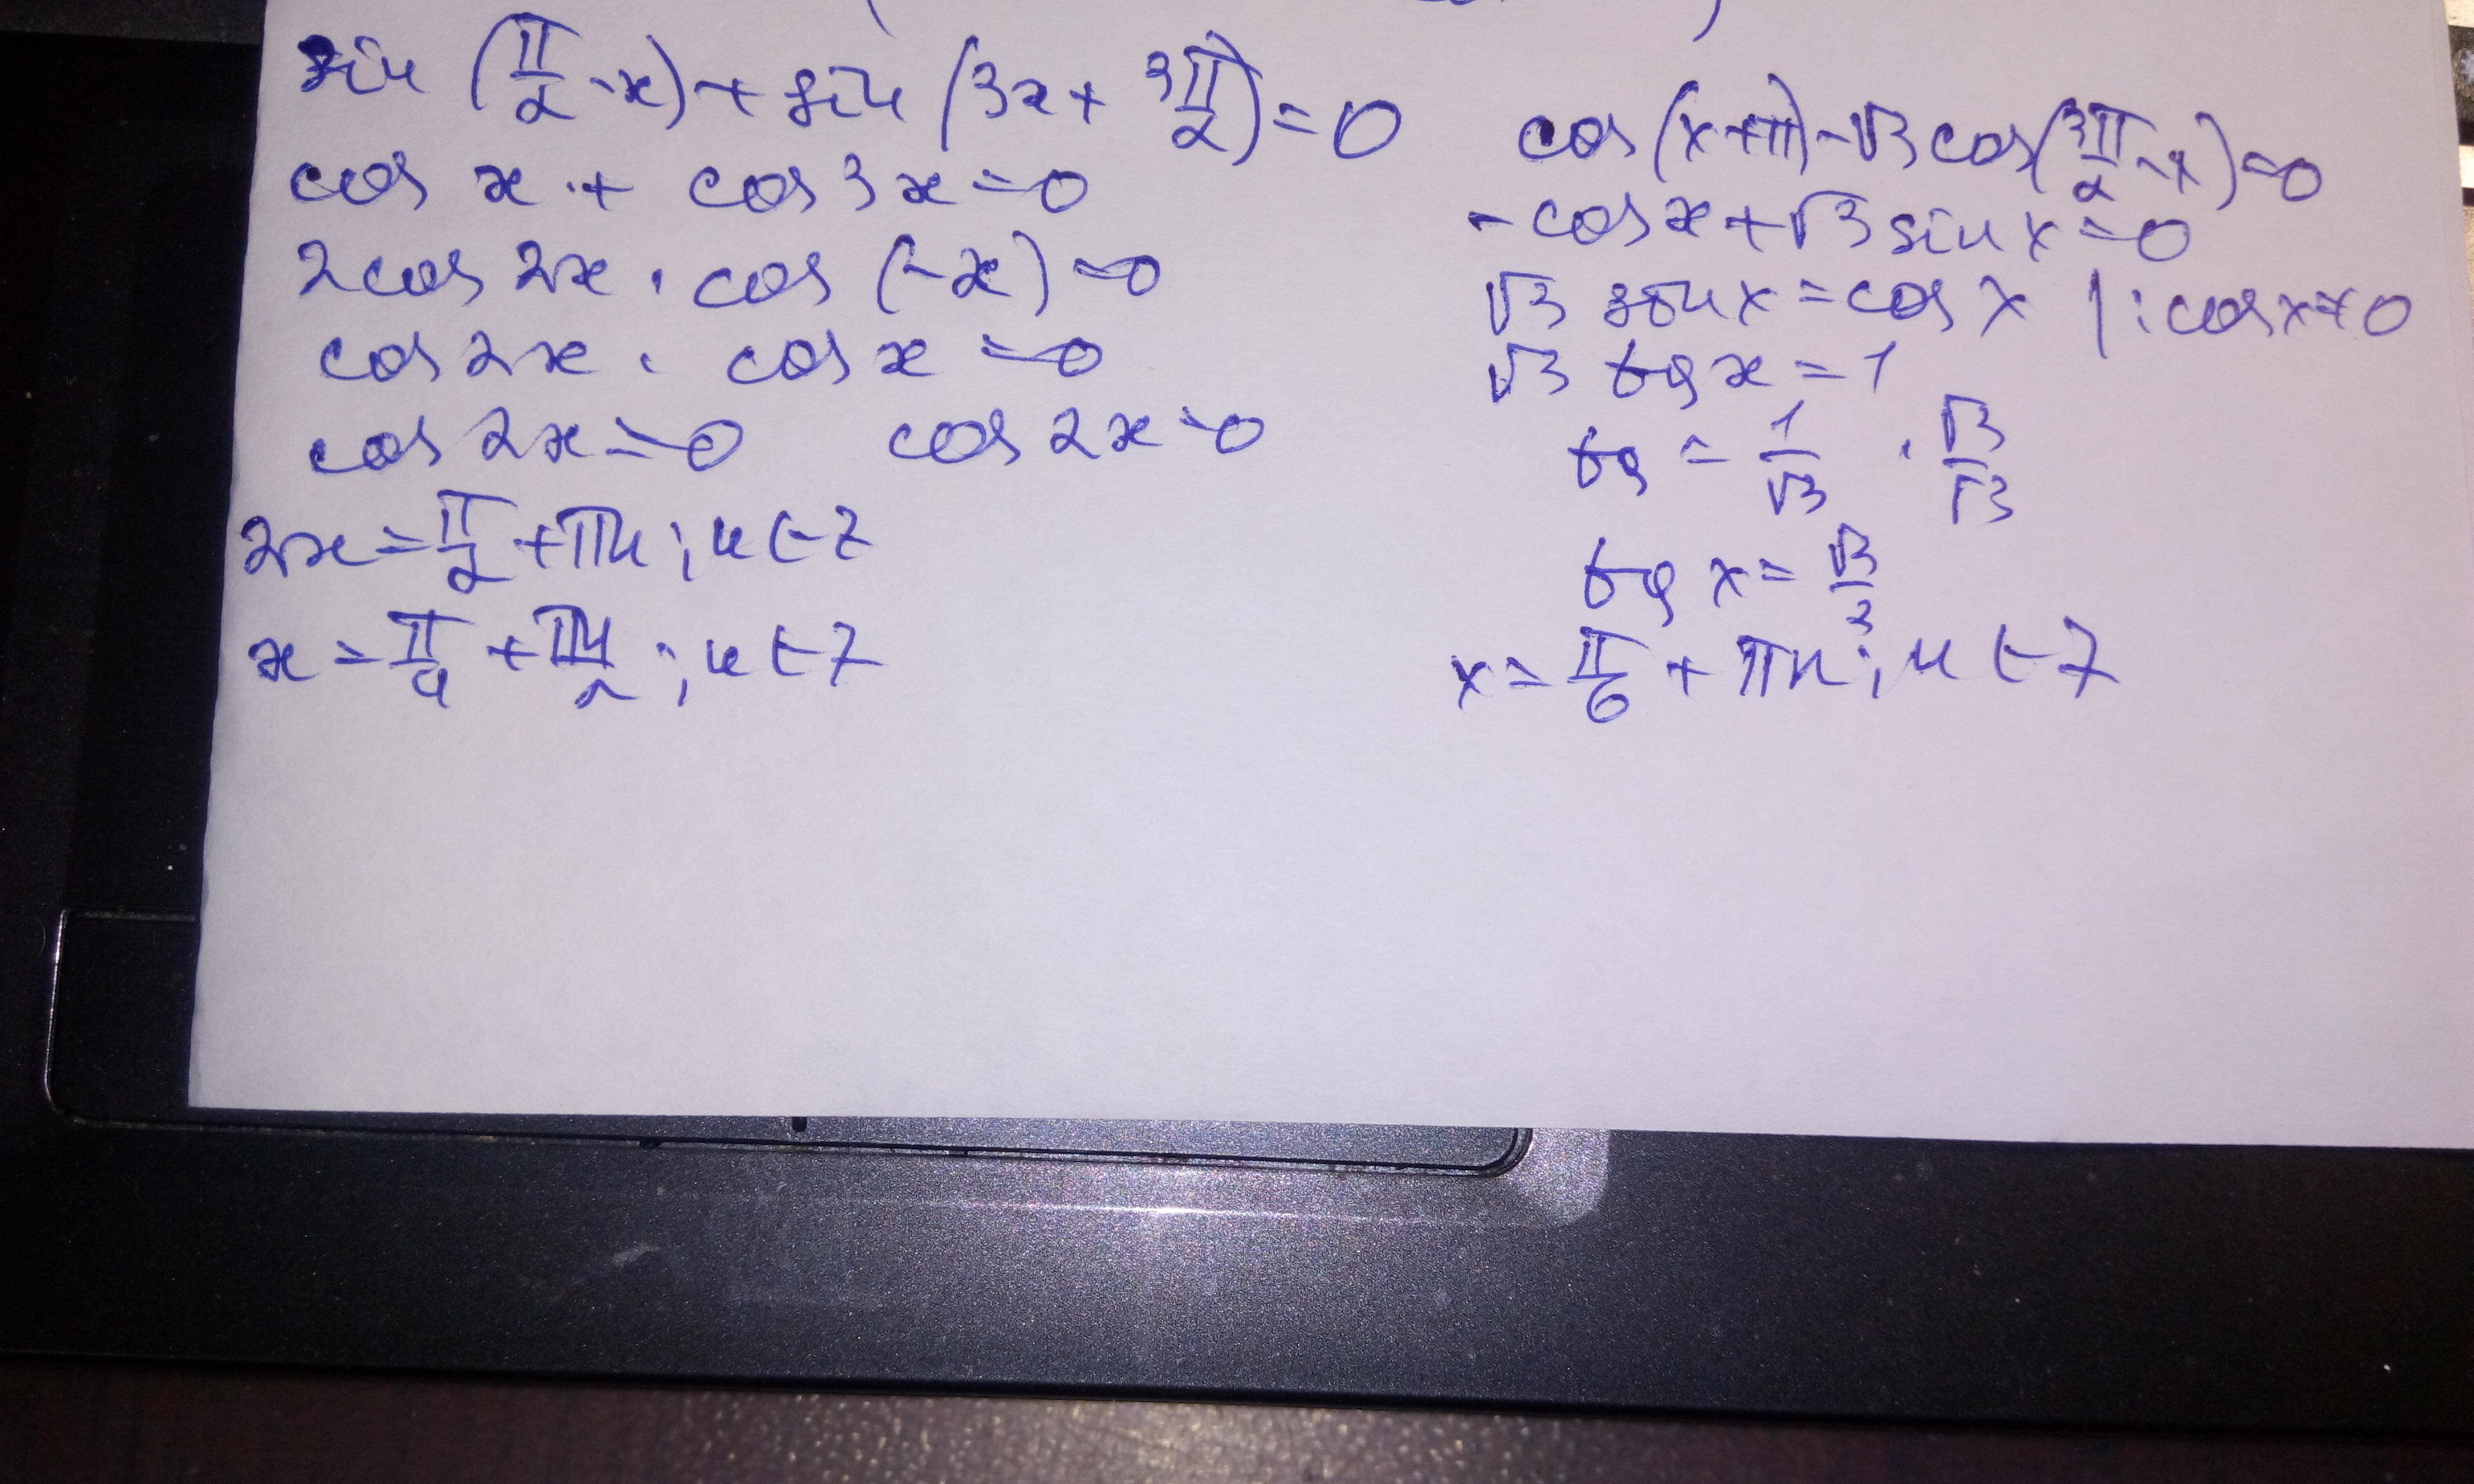 sin (π/2 - x) + sin (3x + 3π/2) = 0
cos x + cos 3x = 0
2cos 2x · cos (-x) = 0
cos 2x · cos x = 0
cos 2x = 0 cos 2x = 0
2x = π/2 + πn ; n ∈ Z
x = π/4 + πn/2 ; n ∈ Z
cos (x+π) - √3 cos (3π/2 - x) = 0
- cos x + √3 sin x = 0
√3 sin x = cos x | : cos x ≠ 0
√3 tg x = 1
tg = 1/√3 · √3/√3
tg x = √3/3
x = π/6 + πn ; n ∈ Z